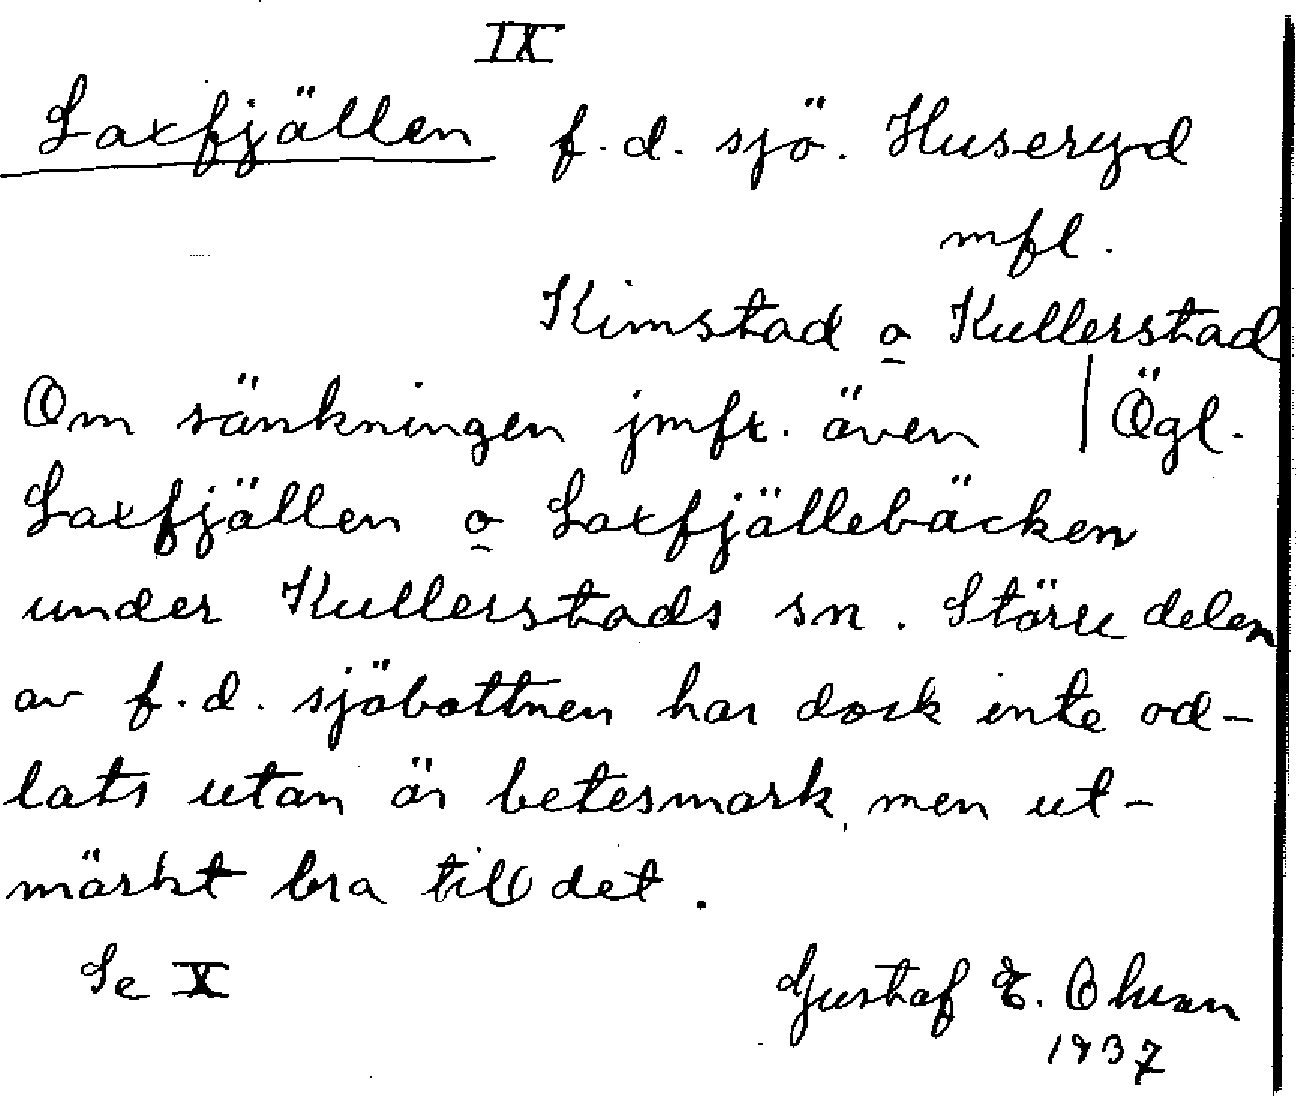 IX
Laxfjällen f.d. sjö. Huseryd
mfl.
Kimstad o Kullerstad
Om sänkningen jmfr. även | Ögl.
Laxfjällen o Laxfjällebäcken
under Kullerstads sn. Större delen
av f.d. sjöbottnen har dock inte od-
lats utan är betesmark, men ut-
märkt bra till det.
Se X
Gustaf E. Ohman
1937